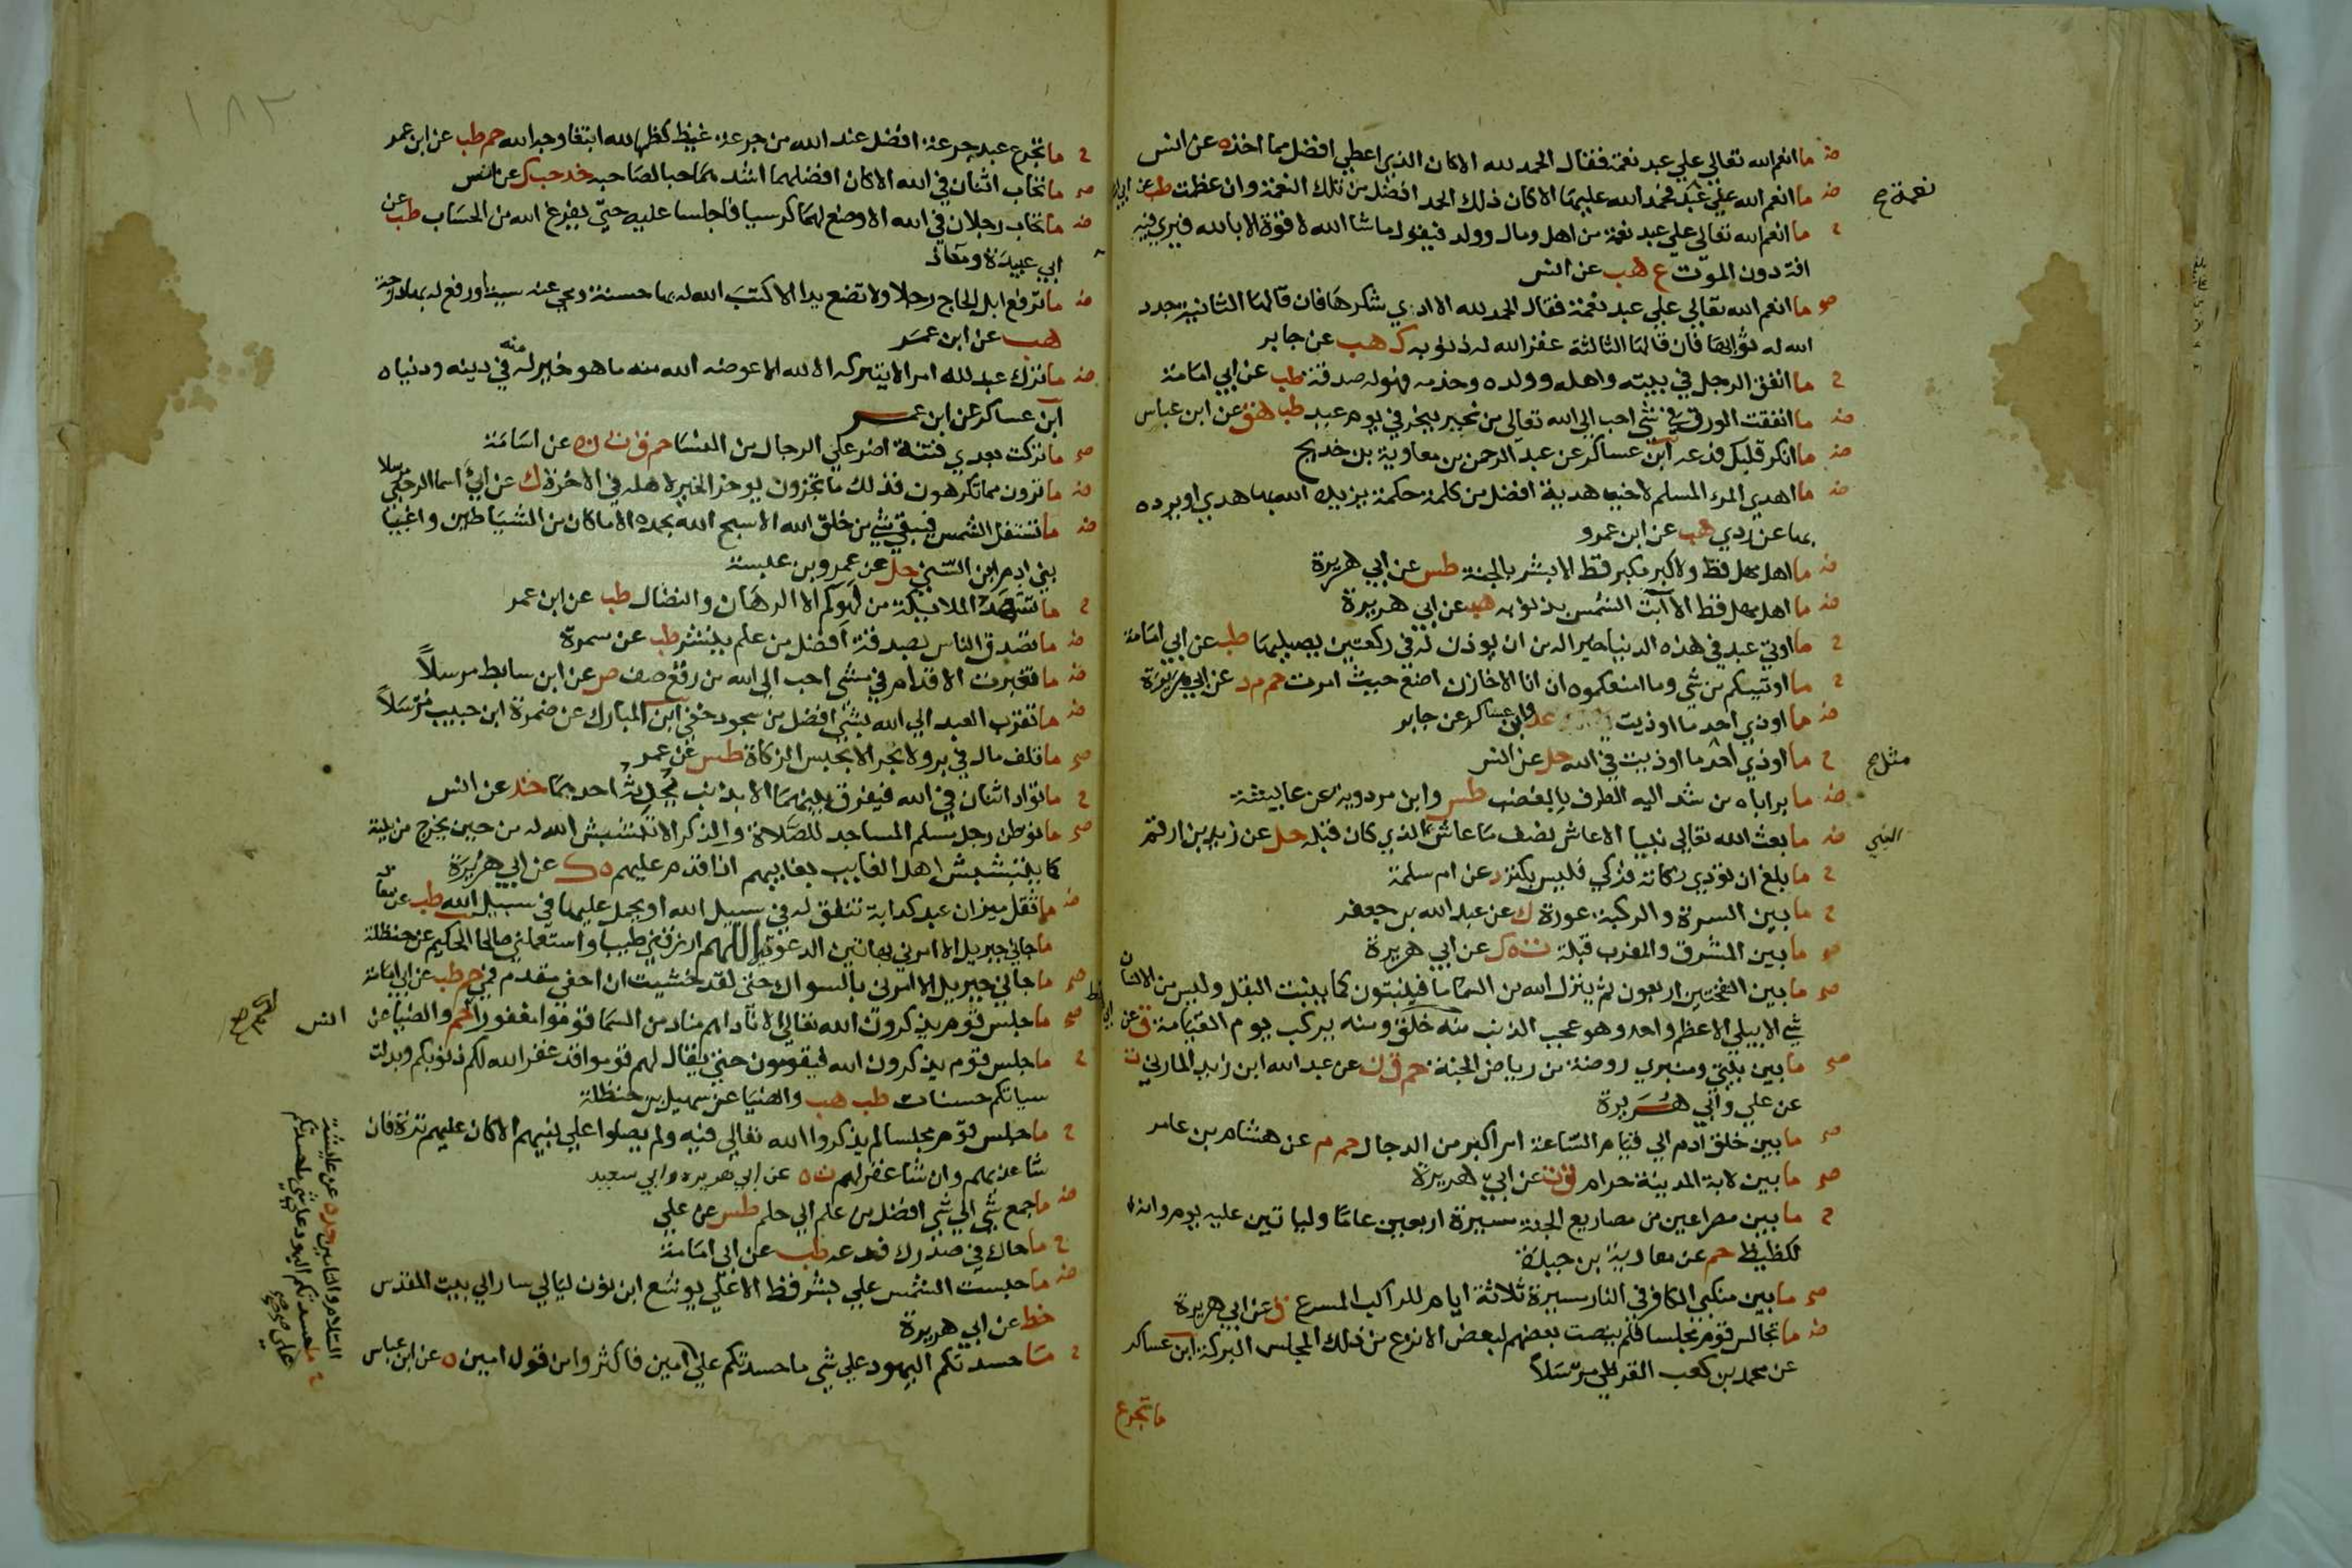 ض ما انعم الله تعالي علي عبد نعمة فقال الحمد لله الا كان الذي اعطي افضل مما اخذه عن انس
ض ما انعم الله علي عبد فحمد الله عليها الا كان ذلك الحمد افضل من تلك النعمة وان عظمت طب عن ابي
نعمة صح
ح ما انعم الله تعالي علي عبد نعمة من اهل ومال وولد فيقول ما شا الله لا قوة الا بالله فيري فيه
افة دون الموت ع هب عن انس
صح ما انعم الله تعالي علي عبد نعمة فقال الحمد لله الا ادي شكرها فان قالها الثانية جدد
الله له ثوابها فان قالها الثالثة غفر الله له ذنوبه ك هب عن جابر
ح ما انفق الرجل في بيته واهله وولده وخدمه فهو له صدقة طب عن ابي امامة
ض ما انفقت الورق في شي احب الي الله تعالى من نحير ينحر في يوم عيد طب هق عن ابن عباس
ض ما انكر قلبك فدعه ابن عساكر عن عبد الرحمن بن معاوية بن خديج
ض ما اهدي المرء المسلم لاخيه هدية افضل من كلمة حكمة يزيده الله بها هدي او يرده
بها عن ردي هب عن ابن عمرو
ض ما اهل مهل قط ولا كبر مكبر قط الا بشر بالجنة طس عن ابي هريرة
ض ما اهل مهل قط الا آبت الشمس بذنوبه هب عن ابي هريرة
ح ما اوتي عبد في هذه الدنيا خيرا له من ان يوذن له في ركعتين يصليهما طب عن ابي امامة
ح ما اوتيكم من شي وما امنعكموه ان انا الا خازن اضع حيث امرت حم د عن ابي هريرة
ض ما اوذي احد ما اوذيت عد وابن عساكر عن جابر
ح ما اوذي احد ما اوذيت في الله حل عن انس
مثل صح
ض ما بر اباه من شد اليه الطرف بالغضب طس وابن مردويه عن عايشة
ض ما بعث الله تعالي نبيا الا عاش نصف ما عاش الذي كان قبله حل عن زيد بن ارقم
النبي
ح ما بلغ ان تؤدي زكاته فزكي فليس بكنز د عن ام سلمة
ح ما بين السرة والركبة عورة ك عن عبد الله بن جعفر
صح ما بين المشرق والمغرب قبلة ت ه ك عن ابي هريرة
صح ما بين النفختين اربعون ثم ينزل الله من السما ما فينبتون كما ينبت البقل وليس من الانسان
شي الا يبلي الا عظم واحد وهو عجب الذنب منه خلق ومنه يركب يوم القيامة ق عن ابي
صح ما بين بيتي ومنبري روضة من رياض الجنة حم ق ن عن عبد الله ابن زيد المازني ت
عن علي وابي هريرة
صح ما بين خلق ادم الي قيام الساعة امر اكبر من الدجال حم م عن هشام بن عامر
صح ما بين لابة المدينة حرام ق ت عن ابي هريرة
ح ما بين مصراعين من مصاريع الجنة مسيرة اربعين عاما ولياتين عليه يوم وانه
لكظيظ حم عن معاوية بن حيدة
صح ما بين منكبي الكافر في النار مسيرة ثلاثة ايام للراكب المسرع ق عن ابي هريرة
ض ما تجالس قوم مجلسا فلم ينصت بعضهم لبعض الا نزع من ذلك المجلس البركة ابن عساكر
عن محمد بن كعب القرظي مرسلا
ما تجرع
١٨٣
ح ما تجرع عبد جرعة افضل عند الله من جرعة غيظ كظمها لله ابتغا وجه الله حم طب عن ابن عمر
صح ما تحاب اثنان في الله الا كان افضلهما اشد هما حبا لصاحبه خد حب ك عن انس
ض ما تحاب رجلان في الله الا وضع لهما كرسيا فاجلسا عليه حتي يفرغ الله من الحساب طب عن
ابي عبيدة ومعاذ
ض ما ترفع ابل الحاج رجلا ولا تضع يدا الا كتب الله له بها حسنة ومحي عنه سيئة او رفع له بها درجة
هب عن ابن عمر
ض ما ترك عبد لله امرا لا يتركه الا لله الا عوضه الله منه ما هو خير له منه في دينه ودنياه
ابن عساكر عن ابن عمر
صح ما تركت بعدي فتنة اضر علي الرجال من النسا حم ق ت ن ه عن اسامة
ض ما ترون مما تكرهون فذلك ما تجزون يوخر الخير لاهله في الاخرة ك عن ابي اسما الرحبي مرسلا
ض ما تستقل الشمس فيبقي شي من خلق الله الا سبح الله بحمده الا ما كان من الشياطين واغبيا
بني ادم ابن السني حل عن عمرو بن عبسة
ح ما تشهد الملائيكة من لهوكم الا الرهان والنضال طب عن ابن عمر
ض ما تصدق الناس بصدقة افضل من علم ينشر طب عن سمرة
ض ما تغبرت الاقدام في مشي احب الي الله من رقع صف ص عن ابن سابط مرسلا
ض ما تقرب العبد الي الله بشي افضل من سجود خفي ابن المبارك عن ضمرة ابن حبيب مرسلا
صح ما تلف مال في بر ولا بحر الا بحبس الزكاة طس عن عمر
ح ما تواد اثنان في الله فيفرق بينهما الا بذنب يحدثه احدهما خد عن انس
صح ما توطن رجل مسلم المساجد للصلاة والذكر الا تبشبش الله له من حين يخرج من بيته
كما يتبشبش اهل الغايب بغايبهم اذا قدم عليهم ه ك عن ابي هريرة
ض ما ثقل ميزان عبد كدابة تنفق له في سبيل الله او يحمل عليها في سبيل الله طب عن معاذ
ما جاني جبريل الا امرني بهاتين الدعوتين اللهم ارزقني طيبا واستعملني صالحا الحكيم عن حنظلة
صح ما جاني جبريل الا امرني بالسواك حتي لقد خشيت ان احفي مقدم في حم طب عن ابي امامة
صح ما جلس قوم يذكرون الله تعالي الا ناداهم مناد من السما قوموا مغفورا لكم حم والضيا عن
انس
ح ما جلس قوم يذكرون الله فيقومون حتي يقال لهم قوموا قد غفر الله لكم ذنوبكم وبدلت
سياتكم حسنات طب هب والضيا عن سهيل بن حنظلة
ح ما جلس قوم مجلسا لم يذكروا الله تعالي فيه ولم يصلوا علي نبيهم الا كان عليهم ترة فان
شا عذبهم وان شا غفر لهم ت ه عن ابي هريره وابي سعيد
ض ما جمع شي الي شي افضل من علم الي حلم طس عن علي
ح ما حاك في صدرك فدعه طب عن ابي امامة
ض ما حبست الشمس علي بشر قط الا علي يوشع ابن نون ليالي سار الي بيت المقدس
خط عن ابي هريرة
ح ما حسدتكم اليهود علي شي ما حسدتكم علي امين فاكثروا من قول امين ه عن ابن عباس
ح ما حسدتكم اليهود علي شي ما حسدتكم علي
السلام والتامين خد ه عن عايشة